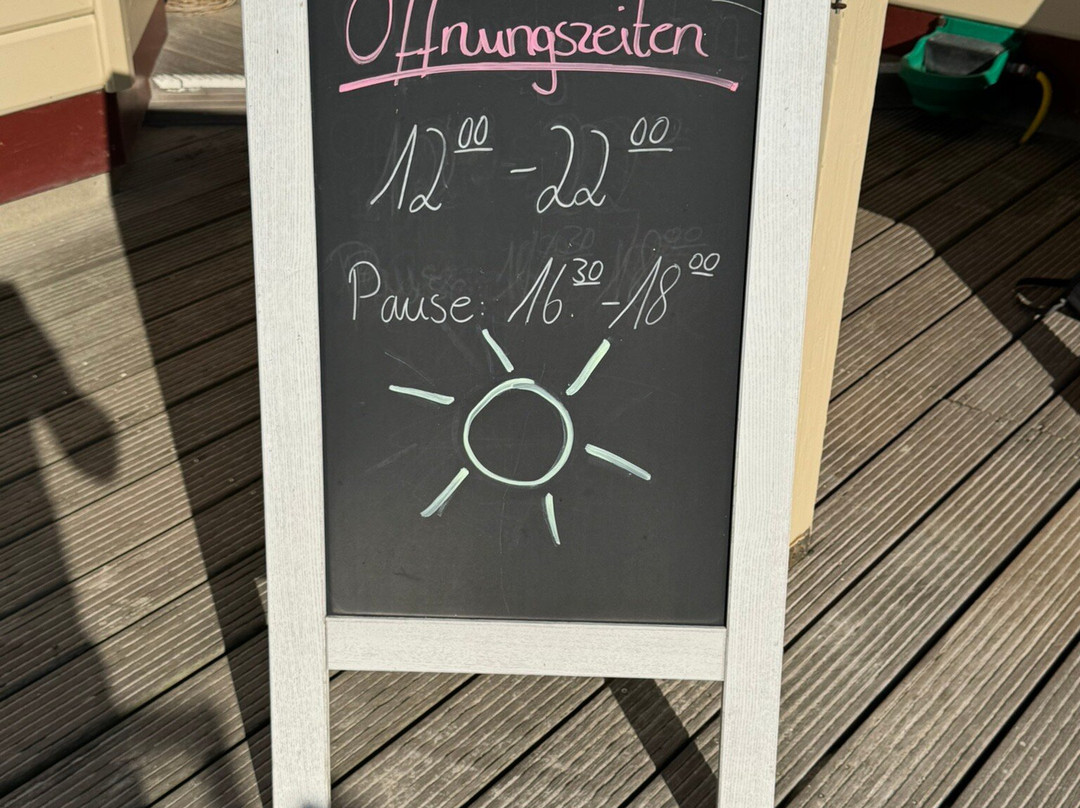 Öffnungszeiten
12⁰⁰ - 22⁰⁰
Pause: 16³⁰ - 18⁰⁰